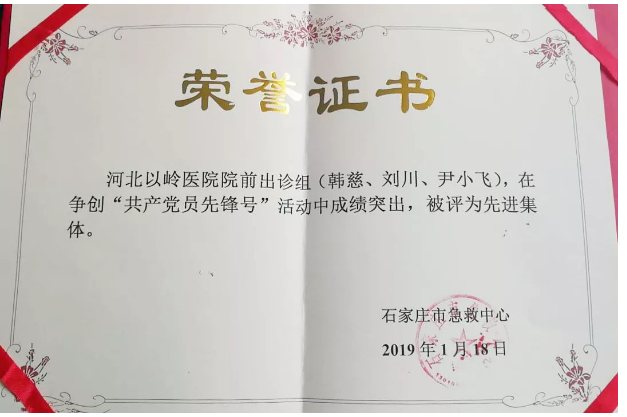 荣誉证书
河北以岭医院院前出诊组（韩慈、刘川、尹小飞），在
争创“共产党员先锋号”活动中成绩突出，被评为先进集
体。
石家庄市急救中心
2019年1月18日